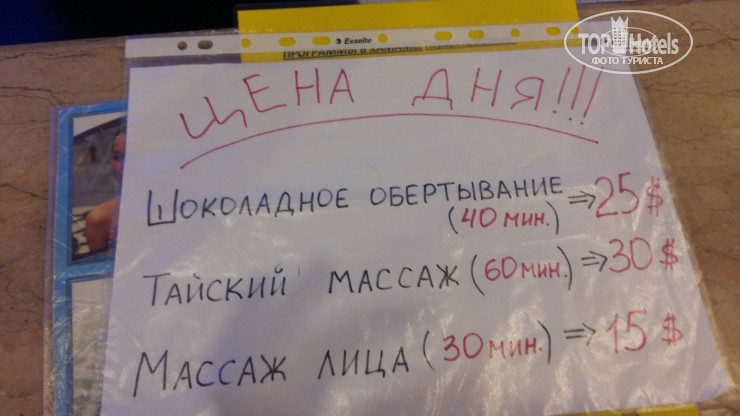 Esselte
ПРОГРАММЫ В ХАМАМЕ
TOP Hotels
ФОТО ТУРИСТА
ЦЕНА ДНЯ!!!
ШОКОЛАДНОЕ ОБЕРТЫВАНИЕ
(40 мин.) ⇒ 25 $
ТАЙСКИЙ МАССАЖ (60 мин.) ⇒ 30 $
МАССАЖ ЛИЦА (30 мин.) ⇒ 15 $